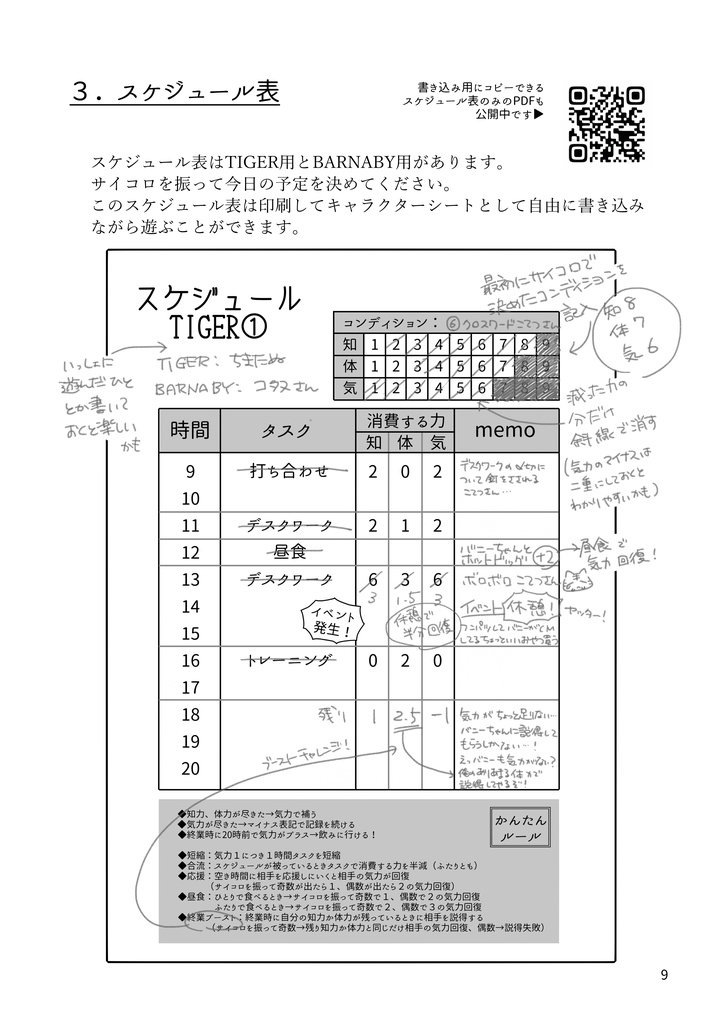 3．スケジュール表
書き込み用にコピーできる
スケジュール表のみのPDFも
公開中です▶
スケジュール表はTIGER用とBARNABY用があります。
サイコロを振って今日の予定を決めてください。
このスケジュール表は印刷してキャラクターシートとして自由に書き込み
ながら遊ぶことができます。
スケジュール
TIGER①
最初にサイコロで
決めたコンディションを
記入
知8
体7
気6
コンディション： ⑥クロスワードこてつさん
知 1 2 3 4 5 6 7 8 9
体 1 2 3 4 5 6 7 8 9
気 1 2 3 4 5 6 7 8 9
いっしょに
遊んだひと
とか書いて
おくと楽しい
かも
TIGER：ちまたぬ
BARNABY：コタスさん
減った力の
分だけ
斜線で消す
(気力のマイナスは
二重にしておくと
わかりやすいかも)
時間 タスク 消費する力 memo
知 体 気
9 打ち合わせ 2 0 2 デスクワークの〆切に
ついて釘をさされる
こてつさん…
10
11 デスクワーク 2 1 2
12 昼食 バニーちゃんと
ホットドッグ! +2
→昼食で
気力回復！
13 デスクワーク 6 3 6 ボロボロこてつさん
3 1.5 3
14 イベント
発生！
休憩で
半分回復
イベント 休憩！ ヤッター！
15
してるちょっといいおやつ買う
16 トレーニング 0 2 0
17
18 残り 1 2.5 -1 気力がちょっと足りない…
バニーちゃんに説得して
もらうしかない…！
19 ブーストチャレンジ！
えっバニーも気力がない？
20 俺のあり余る体力で
説得してやるぞ！
◆知力、体力が尽きた→気力で補う
◆気力が尽きた→マイナス表記で記録を続ける
◆終業時に20時前で気力がプラス→飲みに行ける！
かんたん
ルール
◆短縮：気力１につき１時間タスクを短縮
◆合流：スケジュールが被っているときタスクで消費する力を半減（ふたりとも）
◆応援：空き時間に相手を応援しにいくと相手の気力が回復
（サイコロを振って奇数が出たら１、偶数が出たら２の気力回復）
◆昼食：ひとりで食べるとき→サイコロを振って奇数で１、偶数で２の気力回復
ふたりで食べるとき→サイコロを振って奇数で２、偶数で３の気力回復
◆終業ブースト：終業時に自分の知力か体力が残っているときに相手を説得する
（サイコロを振って奇数→残り知力か体力と同じだけ相手の気力回復、偶数→説得失敗）
9